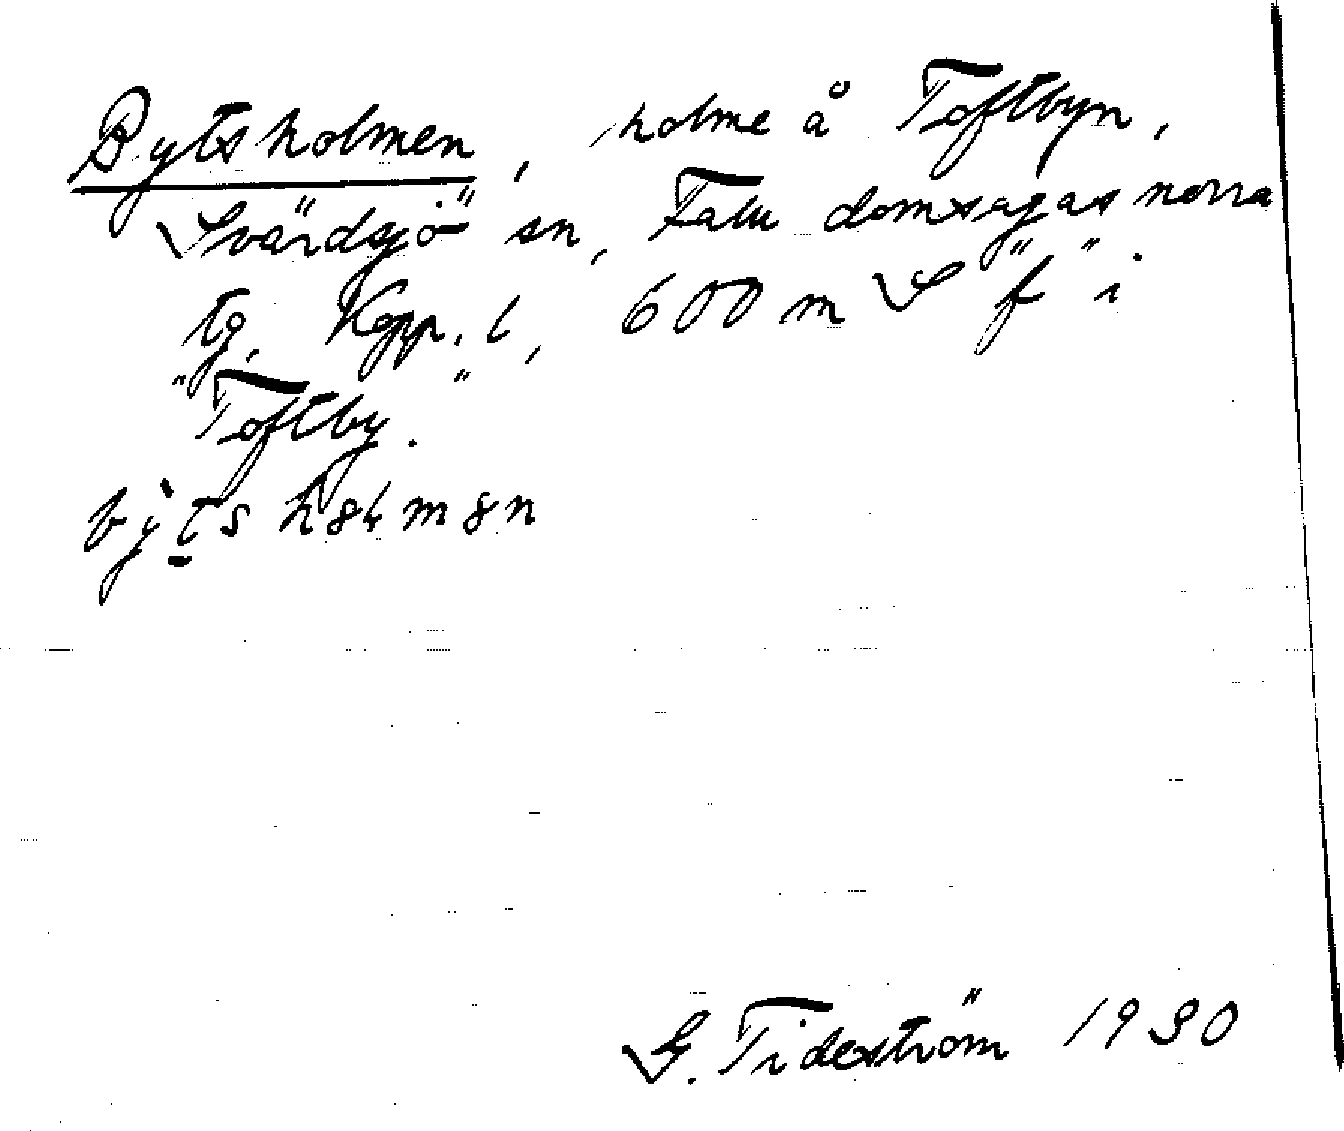 Bytsholmen, holme å Toftbyn,
Svärdsjö sn, Falu domsagas norra
tg, Kopp. l, 600 m S "f" i
"Toftby."
G. Tideström 1930